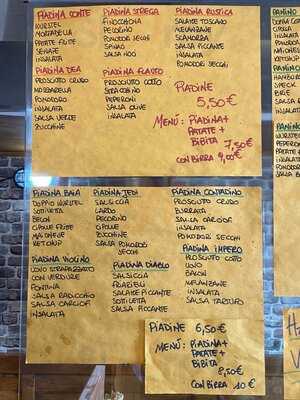 PIADINA CONTE
WURSTEL
MORTADELLA
PATATE FRITTE
SENAPE
INSALATA
PIADINA STREGA
FINOCCHIONA
PECORINO
POMODORI SECCHI
SPINACI
SALSA NOCI
PIADINA RUSTICA
SALAME TOSCANO
MELANZANE
SCAMORZA
SALSA PICCANTE
INSALATA
POMODORI SECCHI
PIADINA DEA
PROSCIUTTO CRUDO
MOZZARELLA
POMODORO
INSALATA
SALSA VERDE
ZUCCHINE
PIADINA FLAUTO
PROSCIUTTO COTTO
STRACCHINO
PEPERONI
SALSA OLIVE
INSALATA
PIADINE
5,50€
MENÙ: PIADINA+
PATATE+
BIBITA
7,50€
CON BIRRA 9,00€
PIADINA BAIA
DOPPIO WURSTEL
SOTTILETTA
BACON
CIPOLLE FRITTE
MAIONESE
KETCHUP
PIADINA JEDI
SALSICCIA
LARDO
PECORINO
CIPOLLE
ZUCCHINE
SALSA POMODORI
SECCHI
PIADINA CONTADINO
PROSCIUTTO CRUDO
BURRATA
SALSA CARCIOFI
INSALATA
POMODORI SECCHI
PIADINA VIOLINO
UOVO STRAPAZZATO
CON VERDURE
FONTINA
SALSA RADICCHIO
SALSA CARCIOFI
INSALATA
PIADINA DIABLO
SALSICCIA
FRIARIELLI
SALAME PICCANTE
SOTTILETTA
SALSA PICCANTE
PIADINA IMPERO
PROSCIUTTO COTTO
UOVO
BACON
MELANZANE
INSALATA
SALSA TARTUFO
PIADINE 6,50€
MENÙ: PIADINA+
PATATE+
BIBITA
8,50€
CON BIRRA 10€